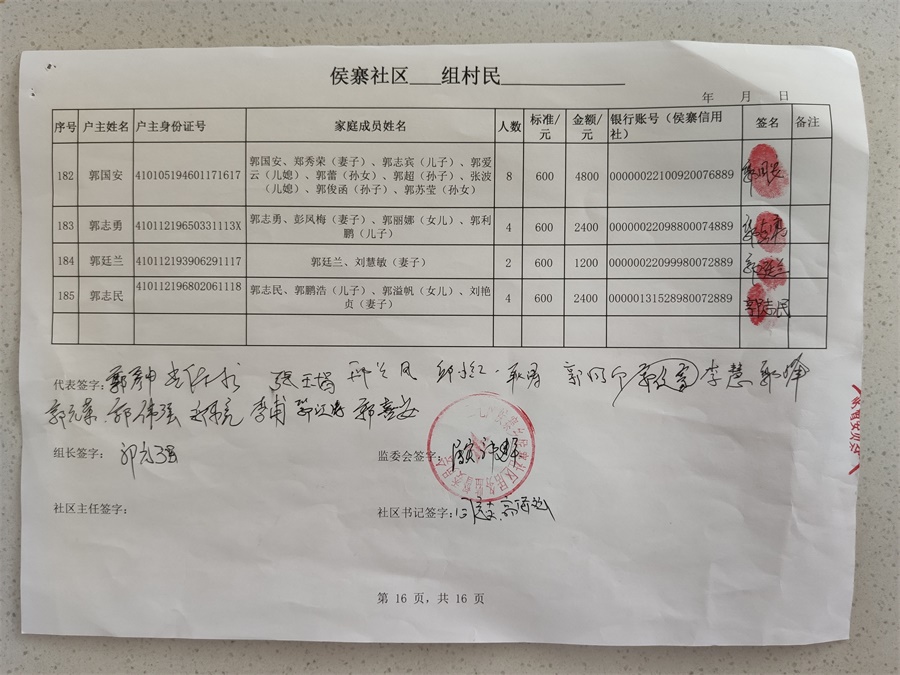 侯寨社区___组村民____________
年 月 日
序号 户主姓名 户主身份证号 家庭成员姓名 人数 标准/元 金额/元 银行账号（侯寨信用社） 签名 备注
182 郭国安 410105194601171617 郭国安、郑秀荣（妻子）、郭志宾（儿子）、郭爱云（儿媳）、郭蕾（孙女）、郭超（孙子）、张波（儿媳）、郭俊函（孙子）、郭苏莹（孙女） 8 600 4800 00000022100920076889 郭国安
183 郭志勇 41011219650331113X 郭志勇、彭凤梅（妻子）、郭丽娜（女儿）、郭利鹏（儿子） 4 600 2400 00000022098800074889 郭志勇
184 郭廷兰 410112193906291117 郭廷兰、刘慧敏（妻子） 2 600 1200 00000022099980072889 郭廷兰
185 郭志民 410112196802061118 郭志民、郭鹏浩（儿子）、郭溢帆（女儿）、刘艳贞（妻子） 4 600 2400 00000131528980072889 郭志民
代表签字： 李慧
郭伟强
组长签字：
监委会签字：
社区主任签字：
社区书记签字：
第 16 页，共 16 页